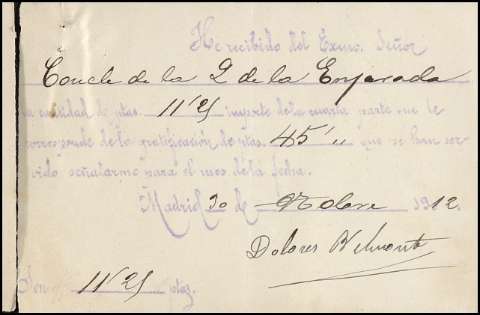 He recibido del Excmo. Señor
Conde de la P. de la Enjarada
la cantidad de ptas. 11'25 importe de la cuarta parte que le
corresponde de la gratificación de ptas. 45',, que se han ser
vido señalarme para el mes de la fecha.
Madrid 30 de 1912.
Dolores Belmonte
Son 11'25 ptas.